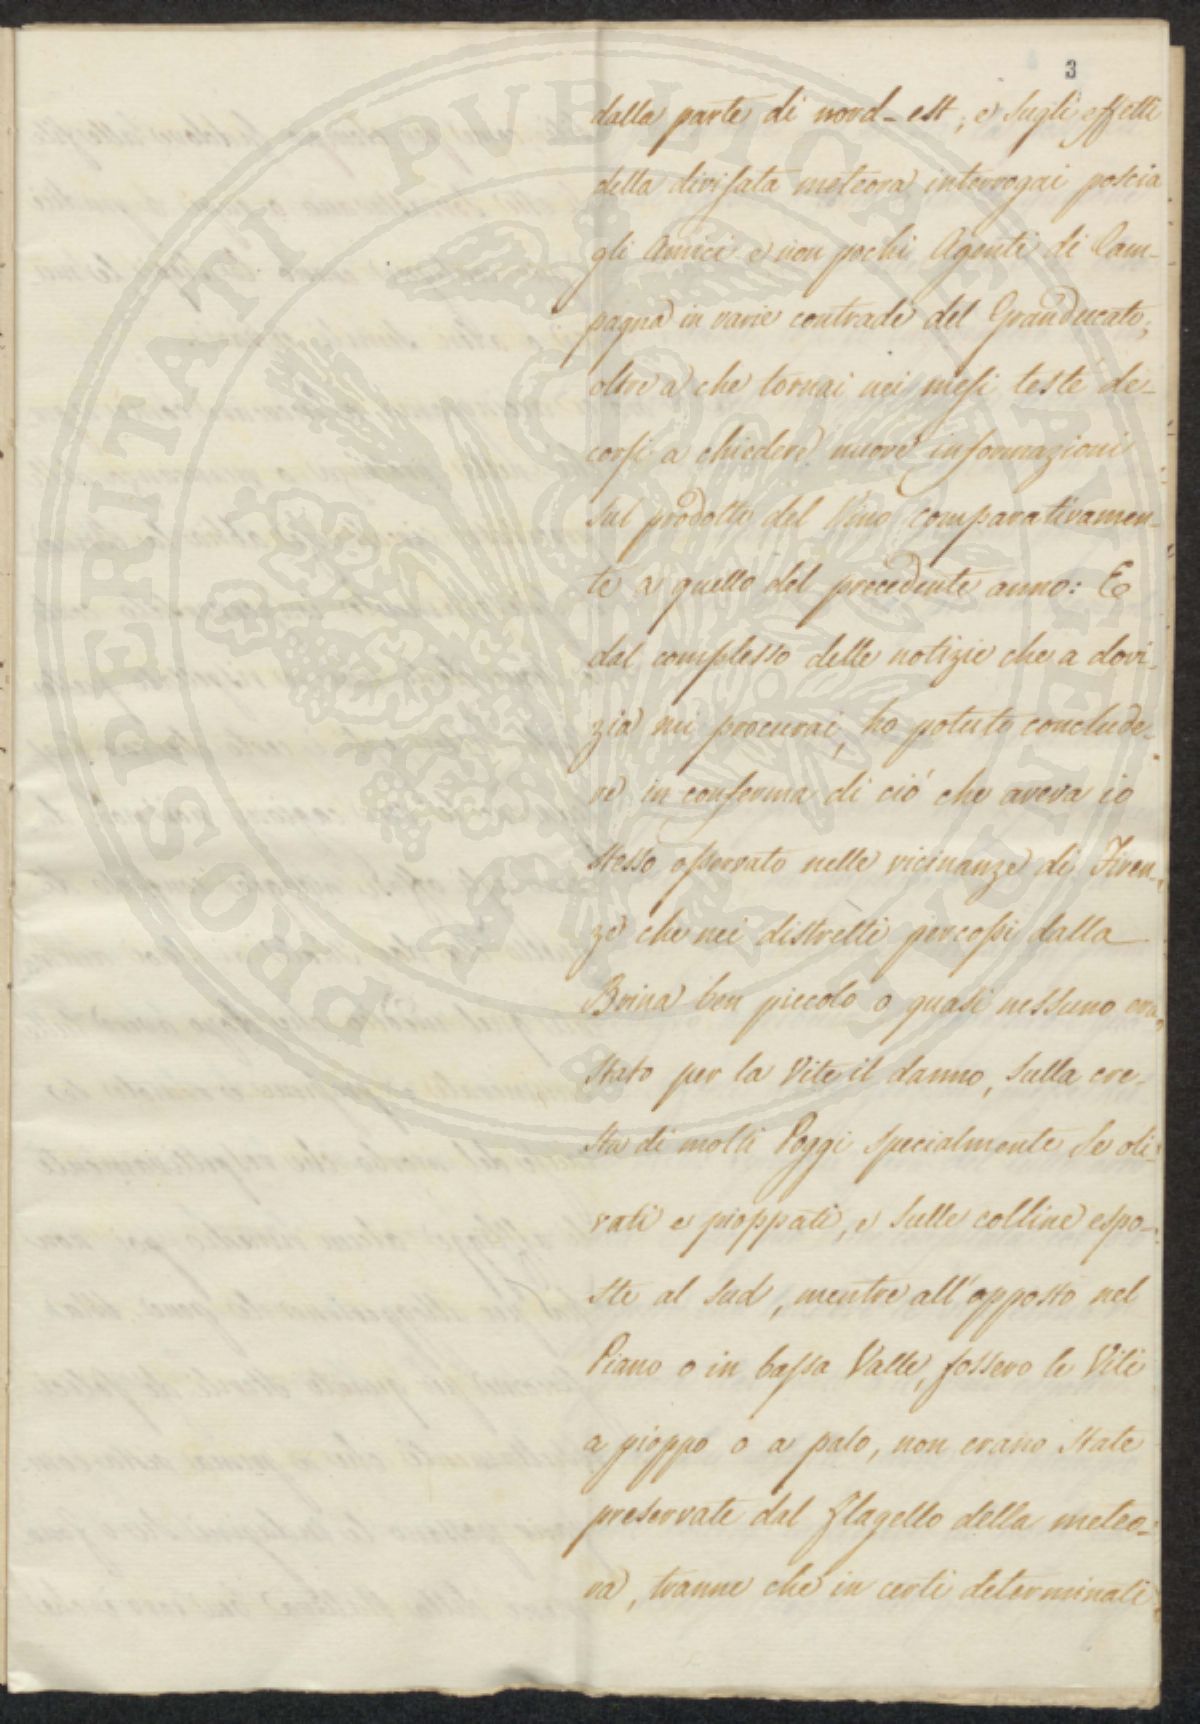 3
dalla parte di nord-est, e sugli effetti
della divisata meteora interrogai poscia
gli Amici e non pochi Agenti di Cam-
pagna in varie contrade del Granducato,
oltre a che tornai nei mesi testé de-
corsi a chiedere nuove informazioni
sul prodotto del Vino comparativamen-
te a quello del precedente anno: E
dal complesso delle notizie che a dovi-
zia mi procurai, ho potuto conclude-
re in conferma di ciò che aveva io
stesso osservato nelle vicinanze di Firen-
ze che nei distretti percossi dalla
Brina ben piccolo o quasi nessuno era
stato per la Vite il danno, sulla cre-
sta di molti Poggi specialmente se oli-
vati e pioppati, e sulle colline espo-
ste al sud, mentre all'opposto nel
Piano o in bassa Valle, fossero le Viti
a pioppo o a palo, non erano state
preservate dal flagello della meteo-
ra, tranne che in certi determinati
PROSPERITATI PUBLICAE AUGENDAE